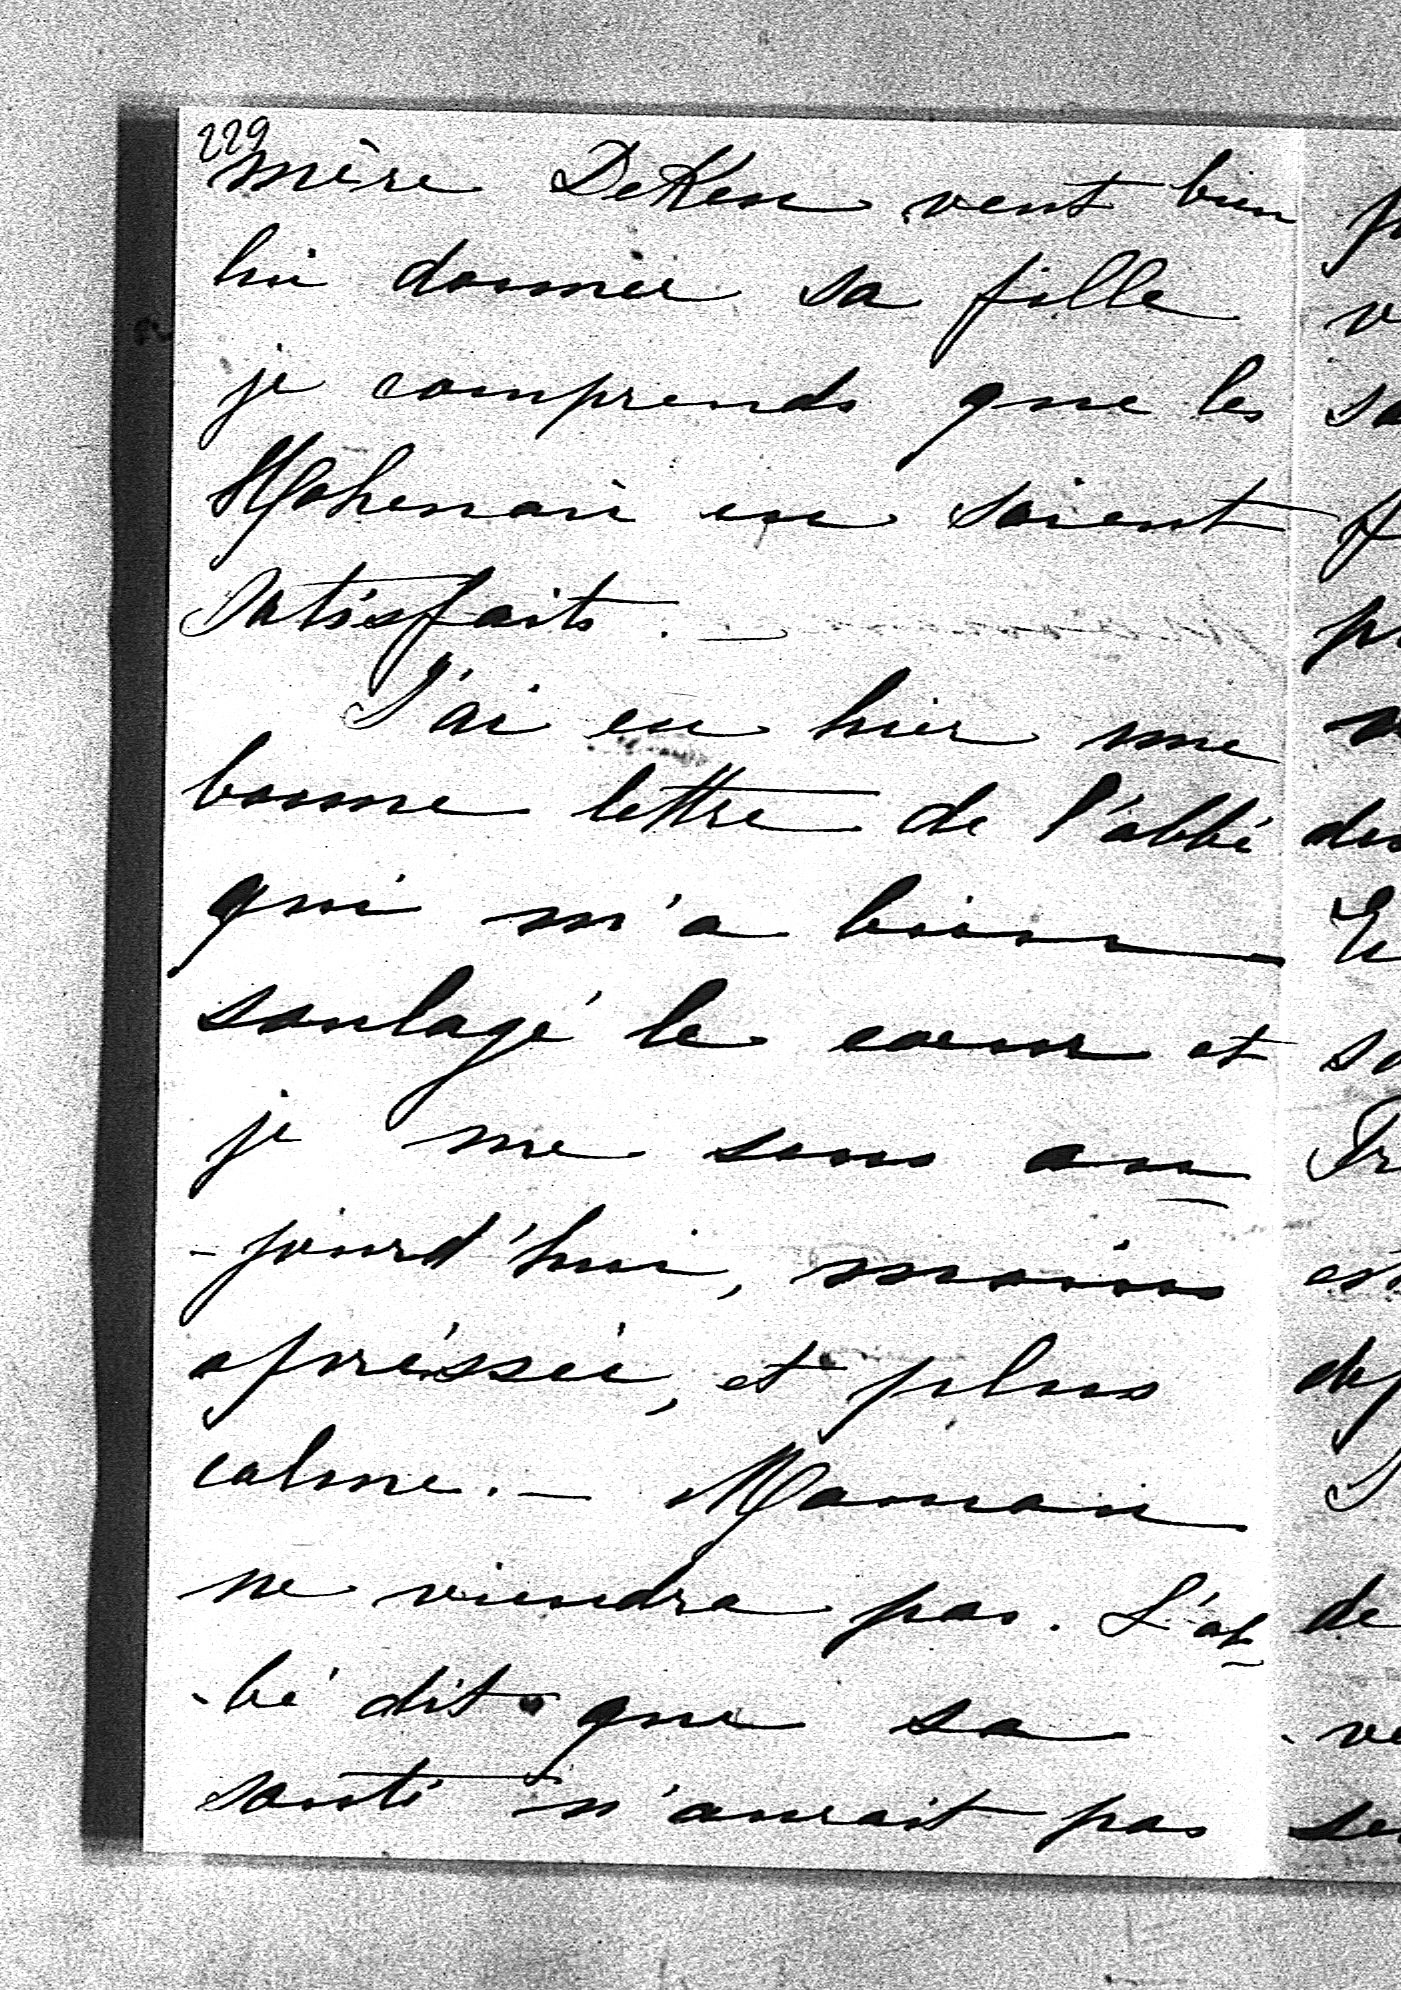 229
mère DeKen veut bien
lui donner sa fille
je comprends que les
en soient
satisfaits. —
J'ai eu hier une
bonne lettre de l'abbé
qui m'a bien
soulagé le cœur et
je me sens au
-jourd'hui, moins
opréssée, et plus
calme. — Maman
ne viendra pas. L'ab
-bé dit que sa
santé n'aurait pas